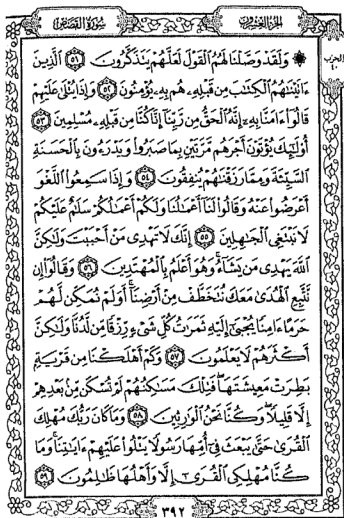 سورة القصص
الجزء العشرون
الحزب
۞ وَلَقَدْ وَصَّلْنَا لَهُمُ ٱلْقَوْلَ لَعَلَّهُمْ يَتَذَكَّرُونَ ٥١ ٱلَّذِينَ
ءَاتَيْنَٰهُمُ ٱلْكِتَٰبَ مِن قَبْلِهِۦ هُم بِهِۦ يُؤْمِنُونَ ٥٢ وَإِذَا يُتْلَىٰ عَلَيْهِمْ
قَالُوٓا۟ ءَامَنَّا بِهِۦٓ إِنَّهُ ٱلْحَقُّ مِن رَّبِّنَآ إِنَّا كُنَّا مِن قَبْلِهِۦ مُسْلِمِينَ ٥٣
أُو۟لَٰٓئِكَ يُؤْتَوْنَ أَجْرَهُم مَّرَّتَيْنِ بِمَا صَبَرُوا۟ وَيَدْرَءُونَ بِٱلْحَسَنَةِ
ٱلسَّيِّئَةَ وَمِمَّا رَزَقْنَٰهُمْ يُنفِقُونَ ٥٤ وَإِذَا سَمِعُوا۟ ٱللَّغْوَ
أَعْرَضُوا۟ عَنْهُ وَقَالُوا۟ لَنَآ أَعْمَٰلُنَا وَلَكُمْ أَعْمَٰلُكُمْ سَلَٰمٌ عَلَيْكُمْ
لَا نَبْتَغِى ٱلْجَٰهِلِينَ ٥٥ إِنَّكَ لَا تَهْدِى مَنْ أَحْبَبْتَ وَلَٰكِنَّ
ٱللَّهَ يَهْدِى مَن يَشَآءُ وَهُوَ أَعْلَمُ بِٱلْمُهْتَدِينَ ٥٦ وَقَالُوٓا۟ إِن
نَّتَّبِعِ ٱلْهُدَىٰ مَعَكَ نُتَخَطَّفْ مِنْ أَرْضِنَآ أَوَلَمْ نُمَكِّن لَّهُمْ
حَرَمًا ءَامِنًا يُجْبَىٰٓ إِلَيْهِ ثَمَرَٰتُ كُلِّ شَىْءٍ رِّزْقًا مِّن لَّدُنَّا وَلَٰكِنَّ
أَكْثَرَهُمْ لَا يَعْلَمُونَ ٥٧ وَكَمْ أَهْلَكْنَا مِن قَرْيَةٍۭ
بَطِرَتْ مَعِيشَتَهَا فَتِلْكَ مَسَٰكِنُهُمْ لَمْ تُسْكَن مِّنۢ بَعْدِهِمْ
إِلَّا قَلِيلًا وَكُنَّا نَحْنُ ٱلْوَٰرِثِينَ ٥٨ وَمَا كَانَ رَبُّكَ مُهْلِكَ
ٱلْقُرَىٰ حَتَّىٰ يَبْعَثَ فِىٓ أُمِّهَا رَسُولًا يَتْلُوا۟ عَلَيْهِمْ ءَايَٰتِنَا وَمَا
كُنَّا مُهْلِكِى ٱلْقُرَىٰٓ إِلَّا وَأَهْلُهَا ظَٰلِمُونَ ٥٩
٣٩٢